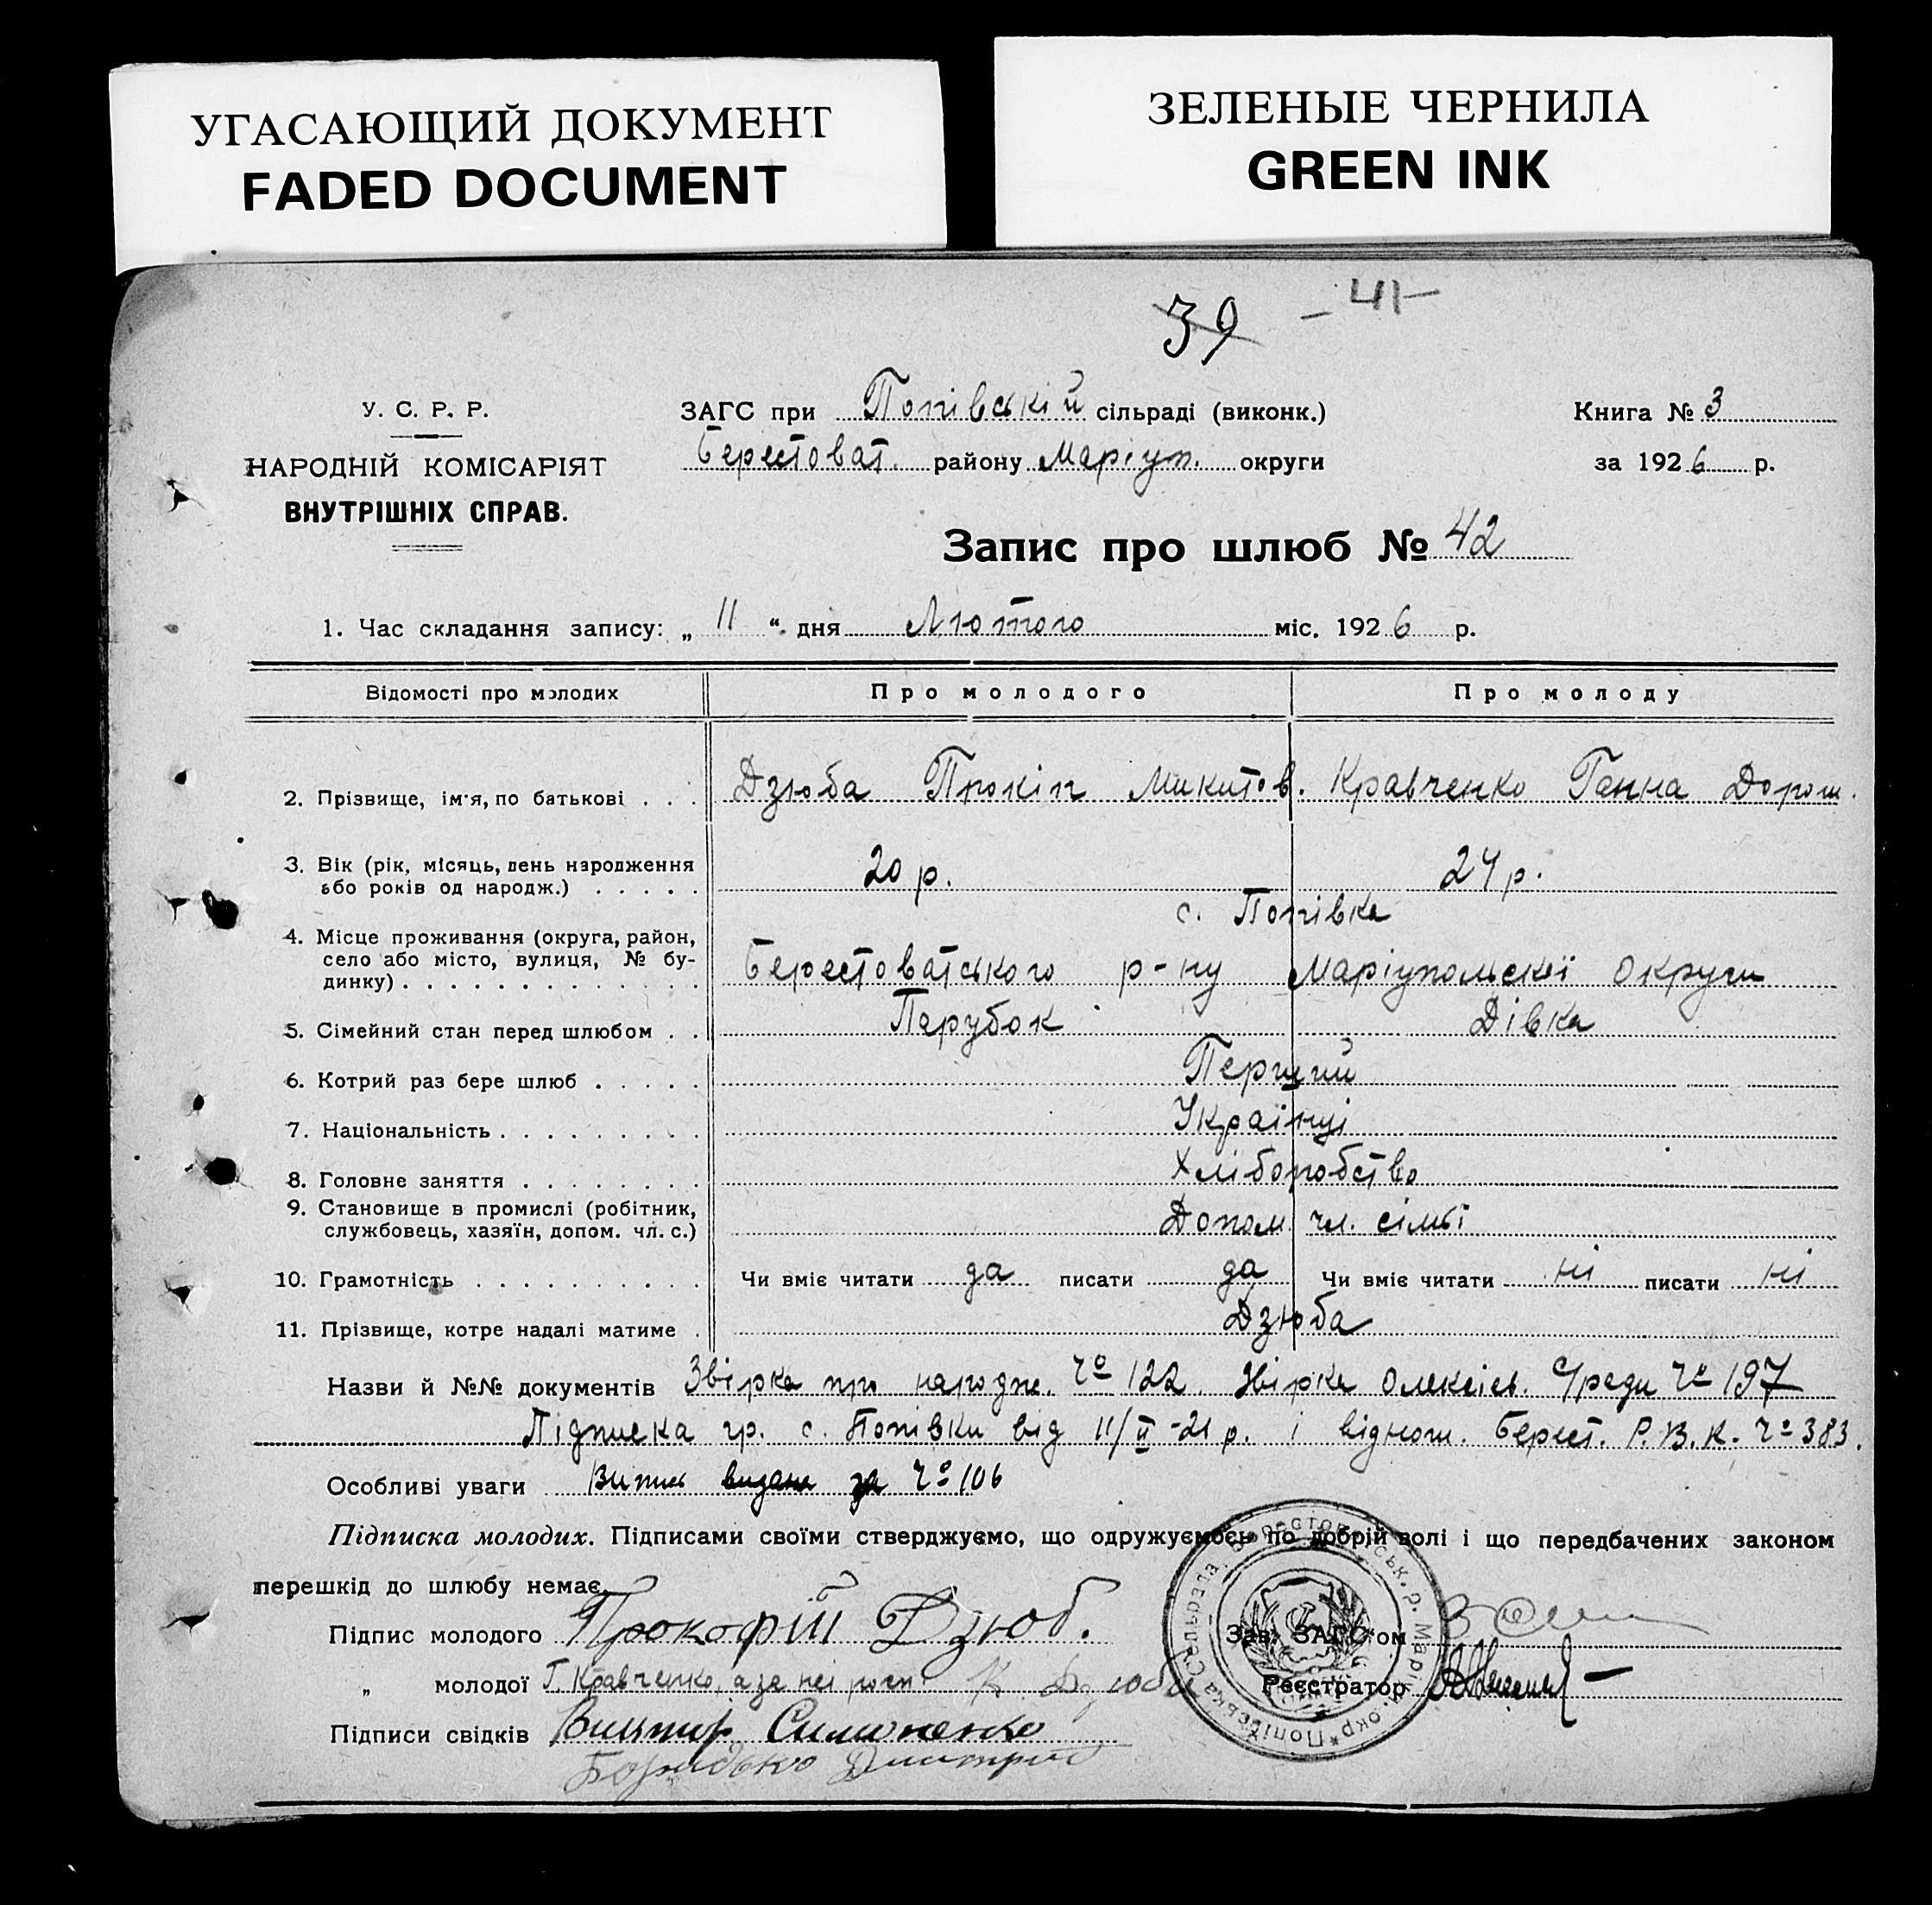 УГАСАЮЩИЙ ДОКУМЕНТ
FADED DOCUMENT
ЗЕЛЕНЫЕ ЧЕРНИЛА
GREEN INK
39 – 41 –
У. С. Р. Р.
НАРОДНІЙ КОМІСАРІЯТ
ВНУТРІШНІХ СПРАВ.
ЗАГС при Попівській сільраді (виконк.)
Берестоват. району Маріуп. округи
Книга № 3
за 1926 р.
Запис про шлюб № 42
1. Час складання запису: „ 11 “ дня Лютого міс. 1926 р.
Відомості про молодих Про молодого Про молоду
2. Прізвище, ім'я, по батькові . . . Дзюба Прокіп Микитов. Кравченко Ганна Дорош.
3. Вік (рік, місяць, день народження
або років од народж.) . . . . . 20 р. 24 р.
с. Попівка
4. Місце проживання (округа, район,
село або місто, вулиця, № бу-
динку) . . . . . . . . . . . . . Берестоватського р-ну Маріупольскої округи
5. Сімейний стан перед шлюбом . . Парубок Дівка
6. Котрий раз бере шлюб . . . . . Перший
7. Національність . . . . . . . . . Українці
8. Головне заняття . . . . . . . . Хліборобство
9. Становище в промислі (робітник,
службовець, хазяїн, допом. чл. с.) Допом. чл. сімьї
10. Грамотність . . . . . . . . . . Чи вміє читати да писати да Чи вміє читати ні писати ні
11. Прізвище, котре надалі матиме . Дзюба
Назви й №№ документів Звірка про народж. № 122. Звірка Олексієв. № 197
Підписка гр. с. Попівки від 11/II -21 р. і віднош. Берест. Р.В.К. № 383.
Особливі уваги Випись видана за № 106
Підписка молодих. Підписами своїми стверджуємо, що одружуємось по добрій волі і що передбачених законом
перешкід до шлюбу немає.
Підпис молодого Прокофій Дзюб.
„ молодої Г. Кравченко, а за неї К. Дзюба
Підписи свідків Виктор Симоненко
Дмитрий
Зав. ЗАГС'ом
Реєстратор